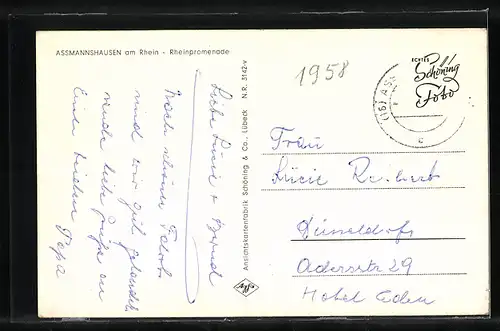 ASSMANNSHAUSEN am Rhein - Rheinpromenade
Liebe Lucie + Bernd
Nach schöner Fahrt
sind wir gut gelandet
sende liebe Grüße an
Euch beiden
Papa
Ansichtskartenfabrik Schöning & Co., Lübeck N.R. 3142-v
1958
(16) ASS
c
ECHTES
Schöning
Foto
Frau
Lücie Reibert
Düsseldorf
Adersstr 29
Hotel Eden